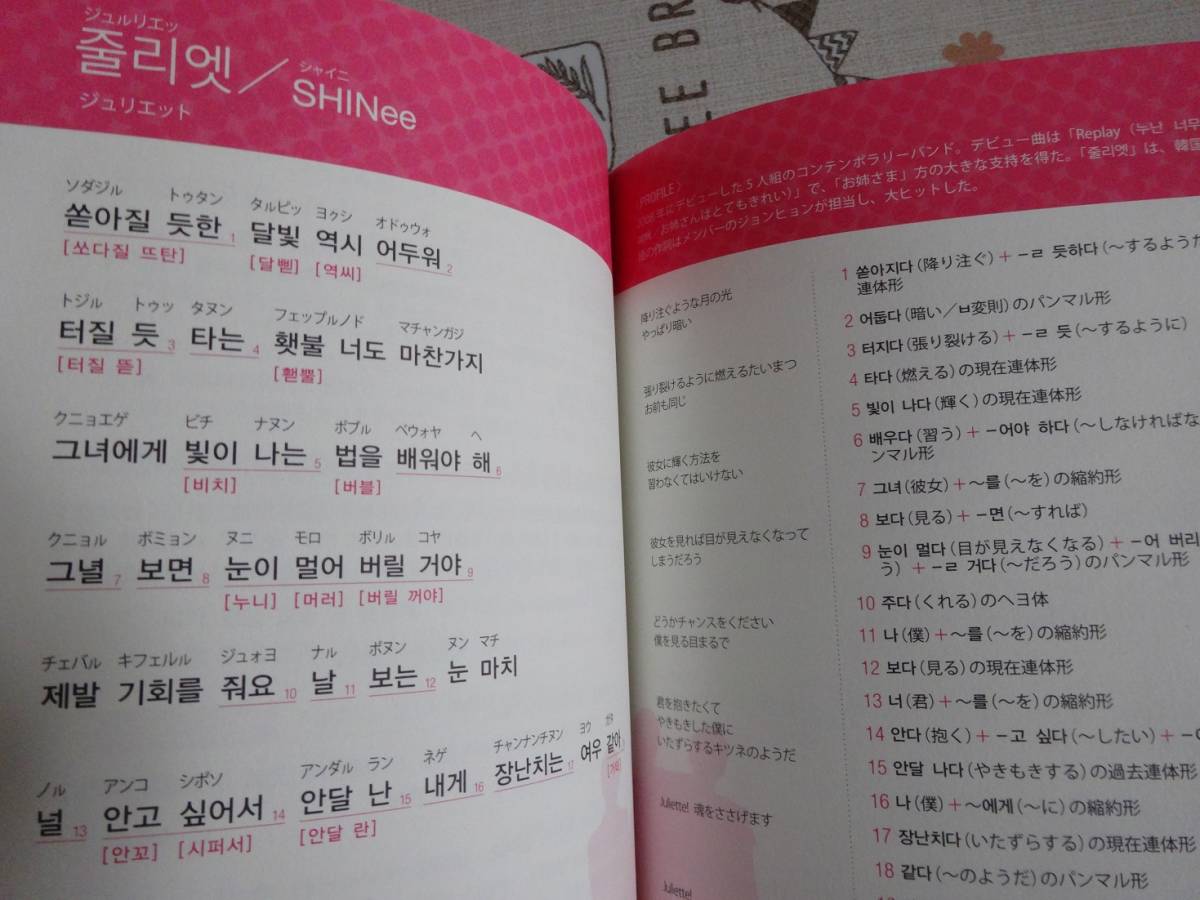 ジュルリエッ
シャイニ
줄리엣／SHINee
ジュリエット
ソダジル トゥタン タルビッ ヨゥシ オドゥウォ
쏟아질 듯한 1 달빛 역시 어두워 2
[쏘다질 뜨탄] [달삗] [역씨]
トジル トゥッ タヌン フェップルノド マチャンガジ
터질 듯 3 타는 4 횃불 너도 마찬가지
[터질 뜯] [횃뿔]
クニョエゲ ビチ ナヌン ボブル ベウォヤ ヘ
그녀에게 빛이 나는 5 법을 배워야 해 6
[비치] [버블]
クニョル ボミョン ヌニ モロ ボリル コヤ
그녈 7 보면 8 눈이 멀어 버릴 거야 9
[누니] [머러] [버릴 꺼야]
チェバル キフェルル ジュォヨ ナル ボヌン ヌン マチ
제발 기회를 줘요 10 날 11 보는 12 눈 마치
ノル アンコ シポソ アンダル ラン ネゲ チャンナンチヌン ヨウ
널 13 안고 싶어서 14 안달 난 15 내게 16 장난치는 17 여우 같아
[안꼬] [시퍼서] [안달 란]
PROFILE〉
年にデビューした5人組のコンテンポラリーバンド。デビュー曲は「Replay（누난 너무
お姉さんはとてもきれい）」で、「お姉さま」方の大きな支持を得た。「줄리엣」は、韓国
の作詞はメンバーのジョンヒョンが担当し、大ヒットした。
降り注ぐような月の光
やっぱり暗い
張り裂けるように燃えるたいまつ
お前も同じ
彼女に輝く方法を
習わなくてはいけない
彼女を見れば目が見えなくなって
しまうだろう
どうかチャンスをください
僕を見る目まるで
君を抱きたくて
やきもきした僕に
いたずらするキツネのようだ
Juliette! 魂をささげます
Juliette!
1 쏟아지다（降り注ぐ）＋-ㄹ 듯하다（〜するようだ
連体形
2 어둡다（暗い／ㅂ変則）のパンマル形
3 터지다（張り裂ける）＋-ㄹ 듯（〜するように）
4 타다（燃える）の現在連体形
5 빛이 나다（輝く）の現在連体形
6 배우다（習う）＋-어야 하다（〜しなければな
ンマル形
7 그녀（彼女）＋〜를（〜を）の縮約形
8 보다（見る）＋-면（〜すれば）
9 눈이 멀다（目が見えなくなる）＋-어 버리
う）＋-ㄹ 거다（〜だろう）のパンマル形
10 주다（くれる）のヘヨ体
11 나（僕）＋〜를（〜を）の縮約形
12 보다（見る）の現在連体形
13 너（君）＋〜를（〜を）の縮約形
14 안다（抱く）＋-고 싶다（〜したい）＋
15 안달 나다（やきもきする）の過去連体形
16 나（僕）＋〜에게（〜に）の縮約形
17 장난치다（いたずらする）の現在連体形
18 같다（〜のようだ）のパンマル形